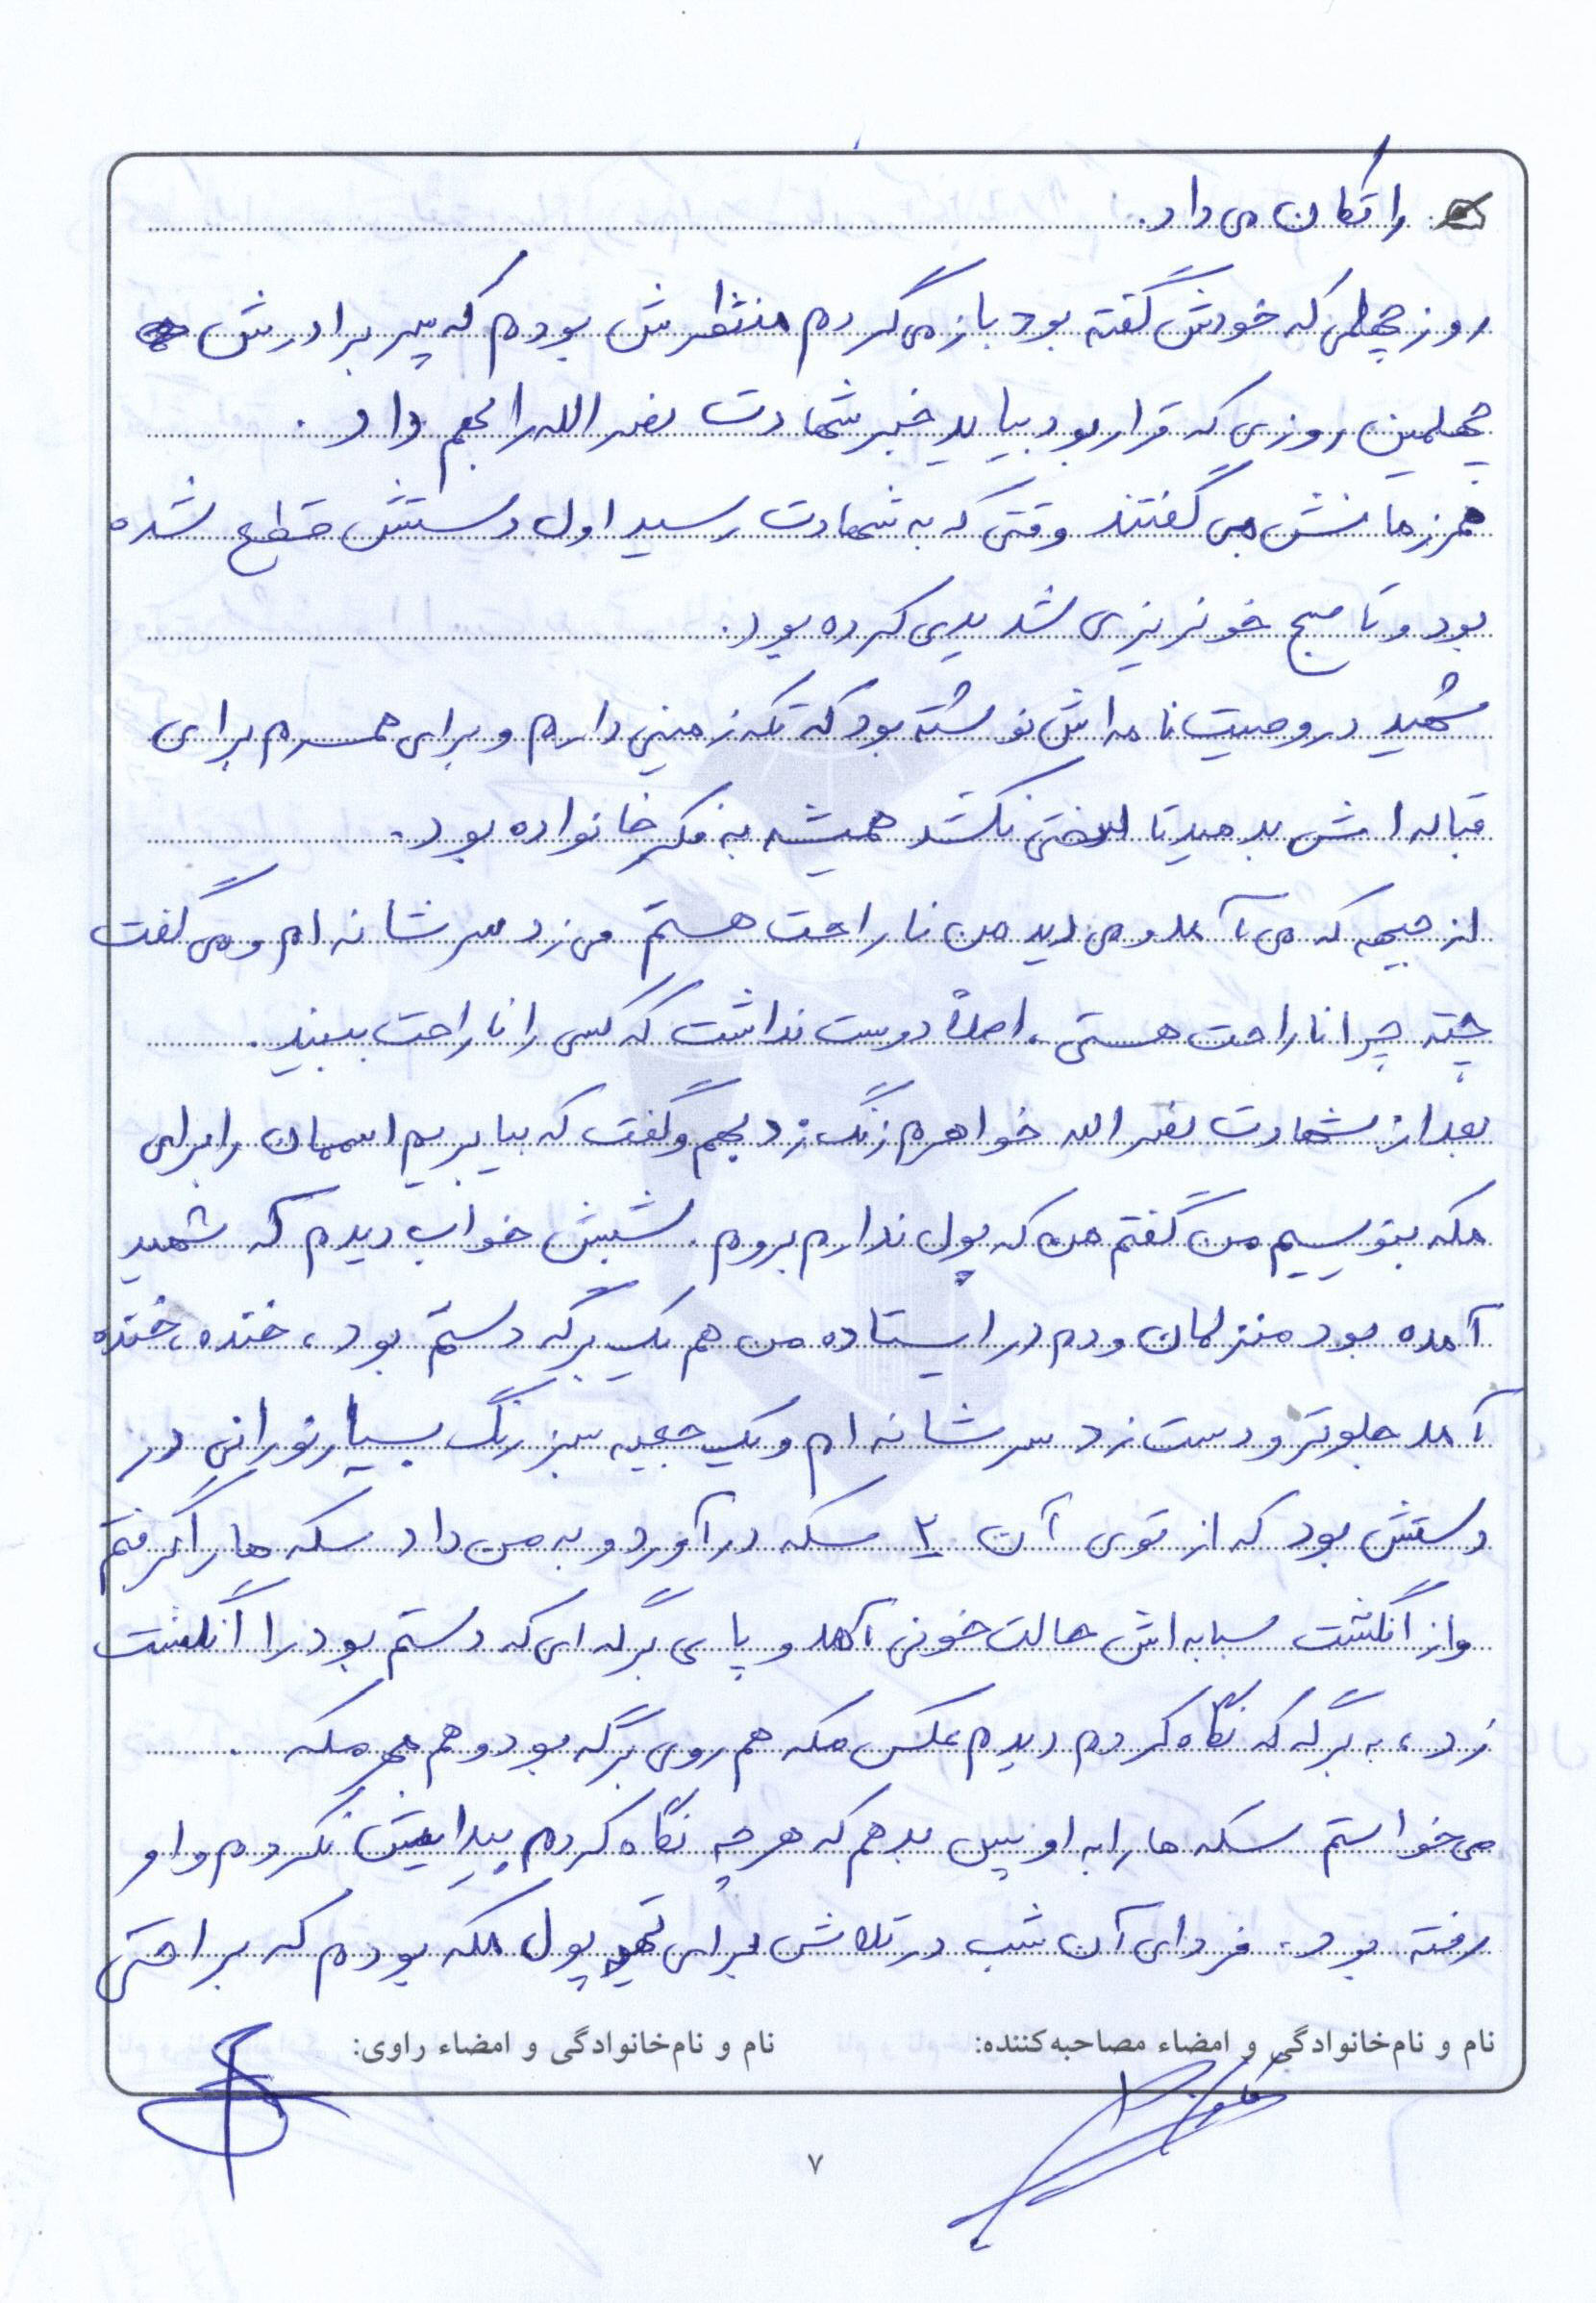 را تکان می داد.
روز چهلمی که خودش گفته بود باز می گردم منتظرش بودم که پسر برادرش
چهلمین روزی که قرار بود بیاید خبر شهادت نصرالله را بهم داد.
همرزمانش می گفتند وقتی که به شهادت رسید اول دستش قطع شده
بود و تا صبح خونریزی شدیدی کرده بود.
شهید در وصیت نامه اش نوشته بود که تکه زمینی دارم و برای همسرم برای
قباله اش بدهید تا سختی نکشد همیشه به فکر خانواده بود.
از جبهه که می آمد و می دید من ناراحت هستم می زد سر شانه ام و می گفت
چته چرا ناراحت هستی، اصلاً دوست نداشت که کسی را ناراحت ببیند.
بعد از شهادت نصرالله خواهرم زنگ زد بهم و گفت که بیا بریم اسممان را برای
مکه بنویسیم من گفتم من که پول ندارم بروم. شبش خواب دیدم که شهید
آمده بود منزلمان و دم در ایستاده من هم یک برگه دستم بود، خنده، خنده
آمد جلوتر و دست زد سر شانه ام و یک جعبه سبز رنگ بسیار نورانی در
دستش بود که از توی آن ۲ سکه در آورد و به من داد سکه ها را گرفتم
و از انگشت سبابه اش حالت خونی آمد و پای برگه ای که دستم بود را انگشت
زد، به برگه که نگاه کردم دیدم عکس مکه هم روی برگه بود و هم مهر مکه.
می خواستم سکه ها را به او پس بدهم که هر چه نگاه کردم پیدایش نکردم و او
رفته بود. فردای آن شب در تلاش برای تهیه پول مکه بودم که براحتی
نام و نام‌خانوادگی و امضاء مصاحبه‌کننده: نام و نام‌خانوادگی و امضاء راوی:
۷